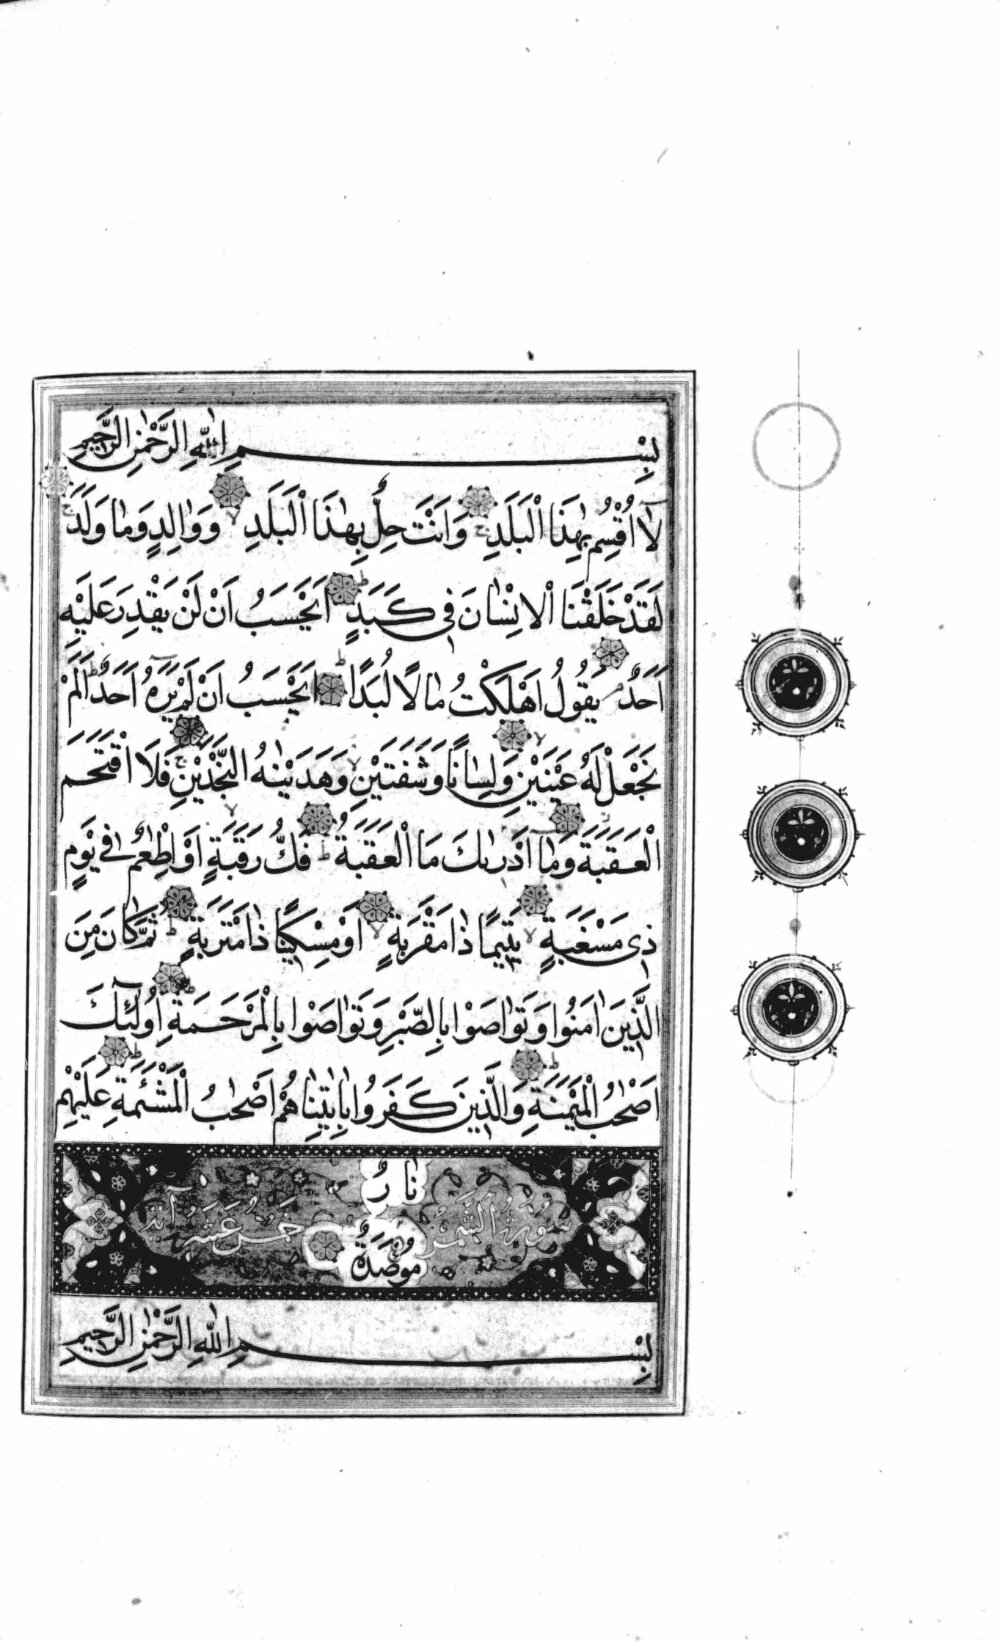 بِسْمِ اللّٰهِ الرَّحْمٰنِ الرَّحِيمِ
لَٓا اُقْسِمُ بِهٰذَا الْبَلَدِ وَاَنْتَ حِلٌّ بِهٰذَا الْبَلَدِ وَوَالِدٍ وَمٰا وَلَدَ
لَقَدْ خَلَقْنَا الْاِنْسٰانَ فِى كَبَدٍ اَيَحْسَبُ اَنْ لَنْ يَقْدِرَ عَلَيْهِ
اَحَدٌ يَقُولُ اَهْلَكْتُ مٰالًا لُبَدًا اَيَحْسَبُ اَنْ لَمْ يَرَهُٓ اَحَدٌ اَلَمْ
نَجْعَلْ لَهُ عَيْنَيْنِ وَلِسٰانًا وَشَفَتَيْنِ وَهَدَيْنٰهُ النَّجْدَيْنِ فَلَا اقْتَحَمَ
الْعَقَبَةَ وَمٰٓا اَدْرٰىكَ مَا الْعَقَبَةُ فَكُّ رَقَبَةٍ اَوْ اِطْعٰمٌ فِى يَوْمٍ
ذِى مَسْغَبَةٍ يَتِيمًا ذٰا مَقْرَبَةٍ اَوْ مِسْكِينًا ذٰا مَتْرَبَةٍ ثُمَّ كٰانَ مِنَ
الَّذِينَ اٰمَنُوا وَتَوٰاصَوْا بِالصَّبْرِ وَتَوٰاصَوْا بِالْمَرْحَمَةِ اُولٰٓئِكَ
اَصْحٰبُ الْمَيْمَنَةِ وَالَّذِينَ كَفَرُوا بِاٰيٰتِنٰا هُمْ اَصْحٰبُ الْمَشْـَٔمَةِ عَلَيْهِمْ
نٰارٌ
سُورَةُ الشَّمْسِ خَمْسَ عَشَرَ آيَة
مُوصَدَةٌ
بِسْمِ اللّٰهِ الرَّحْمٰنِ الرَّحِيمِ